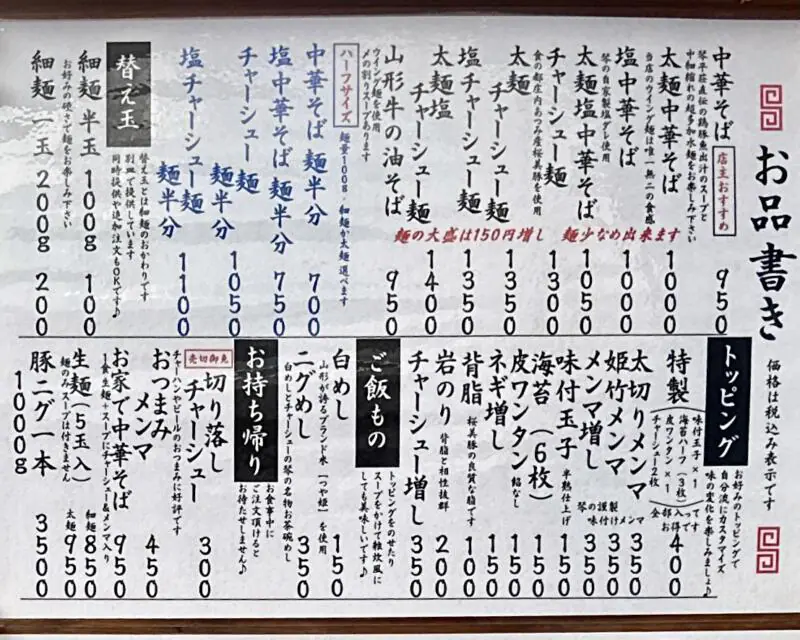 お品書き
価格は税込み表示です
中華そば 店主おすすめ 950
琴平荘直伝の鶏豚魚出汁のスープと
中細縮れの超多加水麺をお楽しみ下さい
太麺中華そば 1000
当店のウイング麺は唯一無二の食感
塩中華そば 1000
琴の自家製塩ダレ使用
太麺塩中華そば 1050
チャーシュー麺 1300
食の都庄内あつみ産桜美豚を使用
太麺チャーシュー麺 1350
塩チャーシュー麺 1350
太麺塩チャーシュー麺 1400
山形牛の油そば 950
ウイング麺を使用
〆の割りスープあります
麺の大盛は150円増し 麺少なめ出来ます
ハーフサイズ 麺量100g・細麺か太麺選べます
中華そば 麺半分 700
塩中華そば 麺半分 750
チャーシュー麺 麺半分 1050
塩チャーシュー麺 麺半分 1100
替え玉
替え玉とは細麺のおかわりです
別皿で提供しています
同時提供や追加注文もOKです♪
細麺 半玉 100g 100
お好みの硬さで麺をお楽しみ下さい
細麺 一玉 200g 200
トッピング
お好みのトッピングで
自分流にカスタマイズ
味の変化を楽しみましょ♪
特製 400
味付玉子×1
海苔ハーフ(3枚)
皮ワンタン×1
チャーシュー2枚
全部入って
お得です
太切りメンマ 350
姫竹メンマ 350
琴の謹製
味付けメンマ
メンマ増し 350
味付玉子 半熟仕上げ 150
海苔(6枚) 150
皮ワンタン 餡なし 150
ネギ増し 150
背脂 桜美豚の良質な脂です 100
岩のり 背脂と相性抜群 200
チャーシュー増し 350
ご飯もの
トッピングをのせたり
スープをかけて雑炊風に
しても美味しいです♪
白めし 150
山形が誇るブランド米「つや姫」を使用
ニグめし 350
白めしとチャーシューの琴の名物お茶碗めし
お持ち帰り
お食事中に
ご注文頂けると
お待たせしません♪
切り落しチャーシュー 売切御免 300
チャーハンやビールのおつまみに好評です
おつまみメンマ 450
お家で中華そば 950
1食生麺+スープにチャーシュー&メンマ入り
生麺(5玉入) 細麺 850 太麺 950
麺のみスープは付きません
豚ニグ一本 1000g 3500